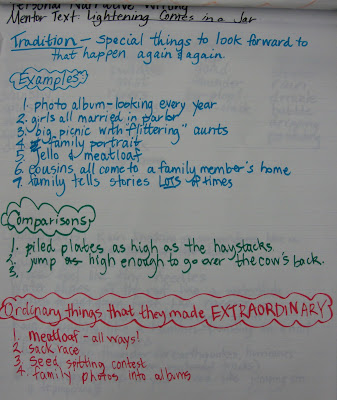 Personal Narrative Writing
Mentor Text: Lightening Comes in a Jar
Tradition - Special things to look forward to
that happen again & again.
Examples
1. photo album-looking every year
2. girls all married in parlor
3. big picnic with "flittering" aunts
4. family portrait
5. jello & meatloaf
6. cousins all come to a family member's home
7. family tells stories LOTS of times
Comparisons
1. piled plates as high as the haystacks
2. jump as high enough to go over the cow's back.
3.
Ordinary things that they made EXTRAORDINARY
1. meatloaf - all ways!
2. sack race
3. Seed spitting contest
4. family photos into albums